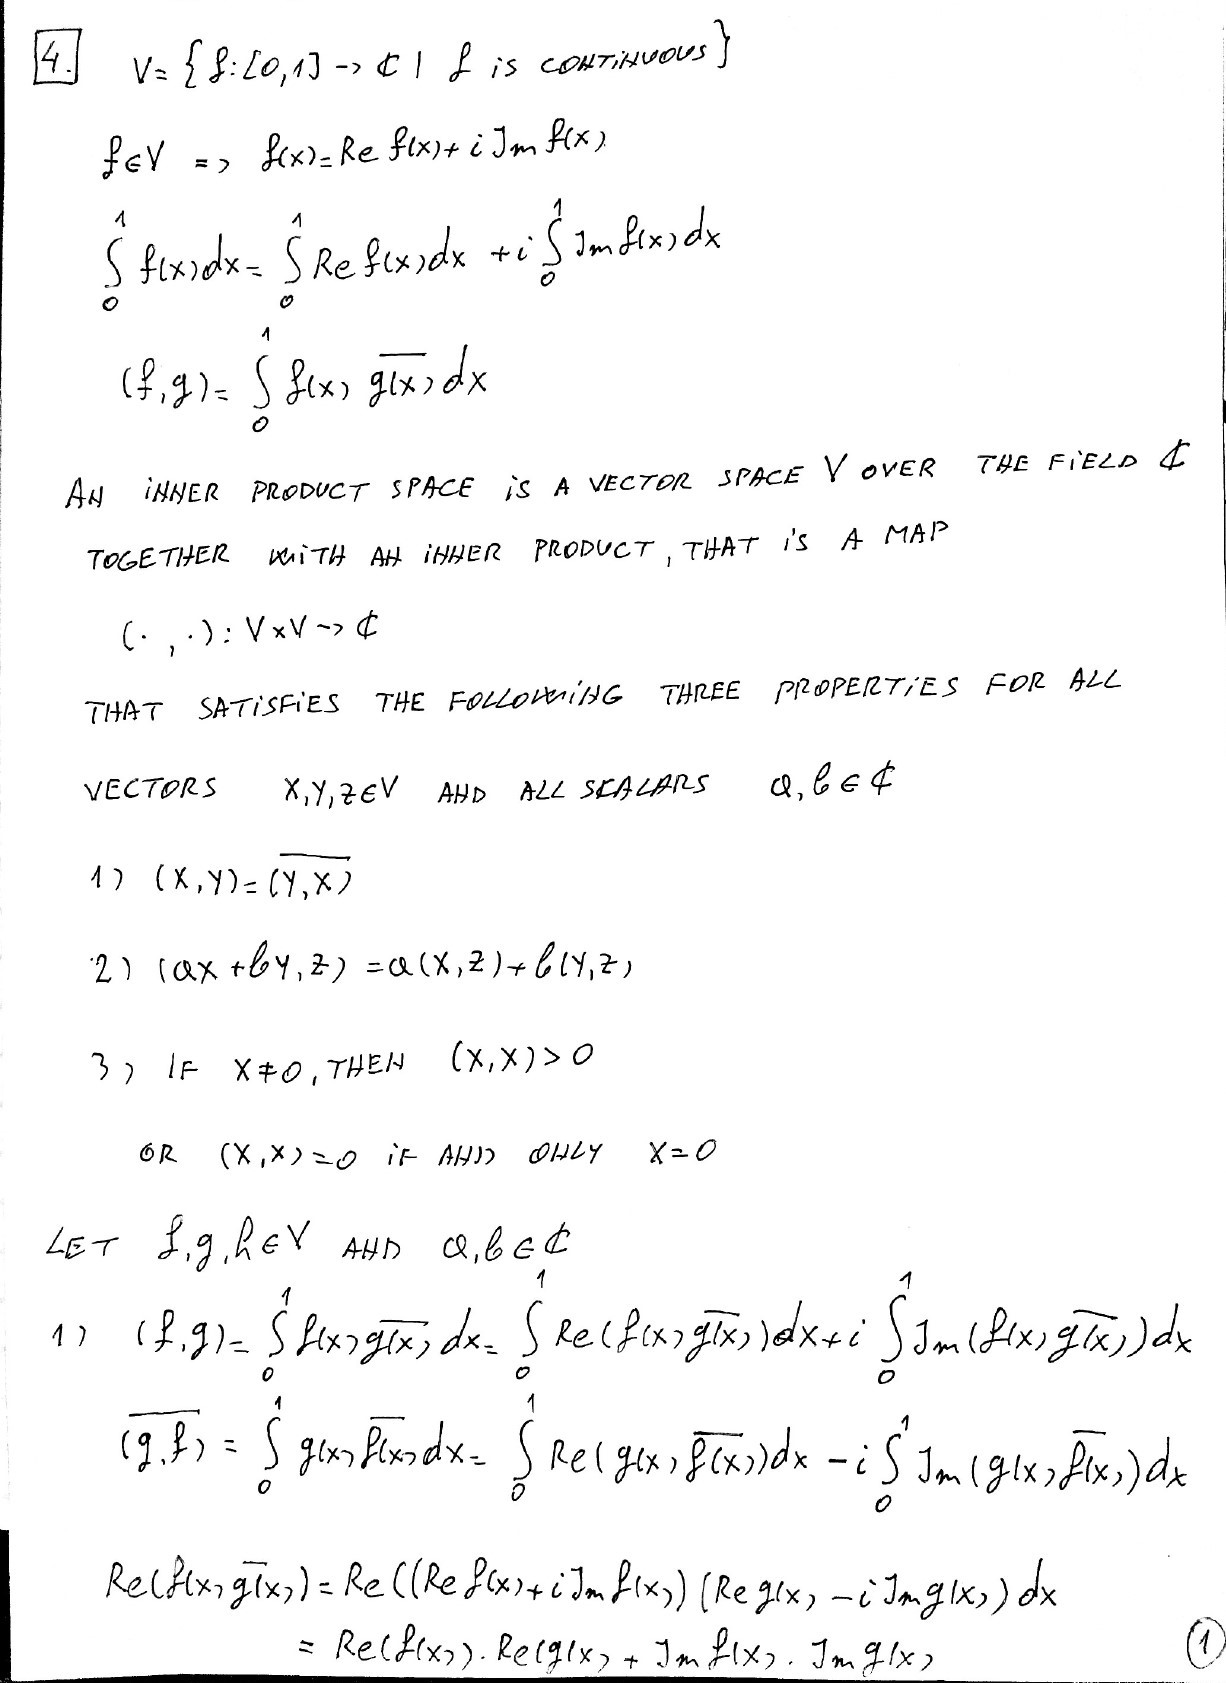 4. V = { f: [0,1] -> ℂ | f is CONTINUOUS }
f ∈ V => f(x) = Re f(x) + i Im f(x)
∫₀¹ f(x) dx = ∫₀¹ Re f(x) dx + i ∫₀¹ Im f(x) dx
(f,g) = ∫₀¹ f(x) \overline{g(x)} dx
AN INNER PRODUCT SPACE IS A VECTOR SPACE V OVER THE FIELD ℂ
TOGETHER WITH AN INNER PRODUCT, THAT IS A MAP
(·,·): V×V -> ℂ
THAT SATISFIES THE FOLLOWING THREE PROPERTIES FOR ALL
VECTORS X,Y,Z ∈ V AND ALL SCALARS a,b ∈ ℂ
1) (X,Y) = \overline{(Y,X)}
2) (aX + bY, Z) = a(X,Z) + b(Y,Z)
3) IF X ≠ 0, THEN (X,X) > 0
OR (X,X) = 0 IF AND ONLY X = 0
LET f,g,h ∈ V AND a,b ∈ ℂ
1) (f,g) = ∫₀¹ f(x) \overline{g(x)} dx = ∫₀¹ Re(f(x) \overline{g(x)}) dx + i ∫₀¹ Im(f(x) \overline{g(x)}) dx
\overline{(g,f)} = ∫₀¹ g(x) \overline{f(x)} dx = ∫₀¹ Re(g(x) \overline{f(x)}) dx - i ∫₀¹ Im(g(x) \overline{f(x)}) dx
Re(f(x) \overline{g(x)}) = Re((Re f(x) + i Im f(x)) (Re g(x) - i Im g(x)) dx
= Re(f(x)) · Re(g(x) + Im f(x) · Im g(x)
1